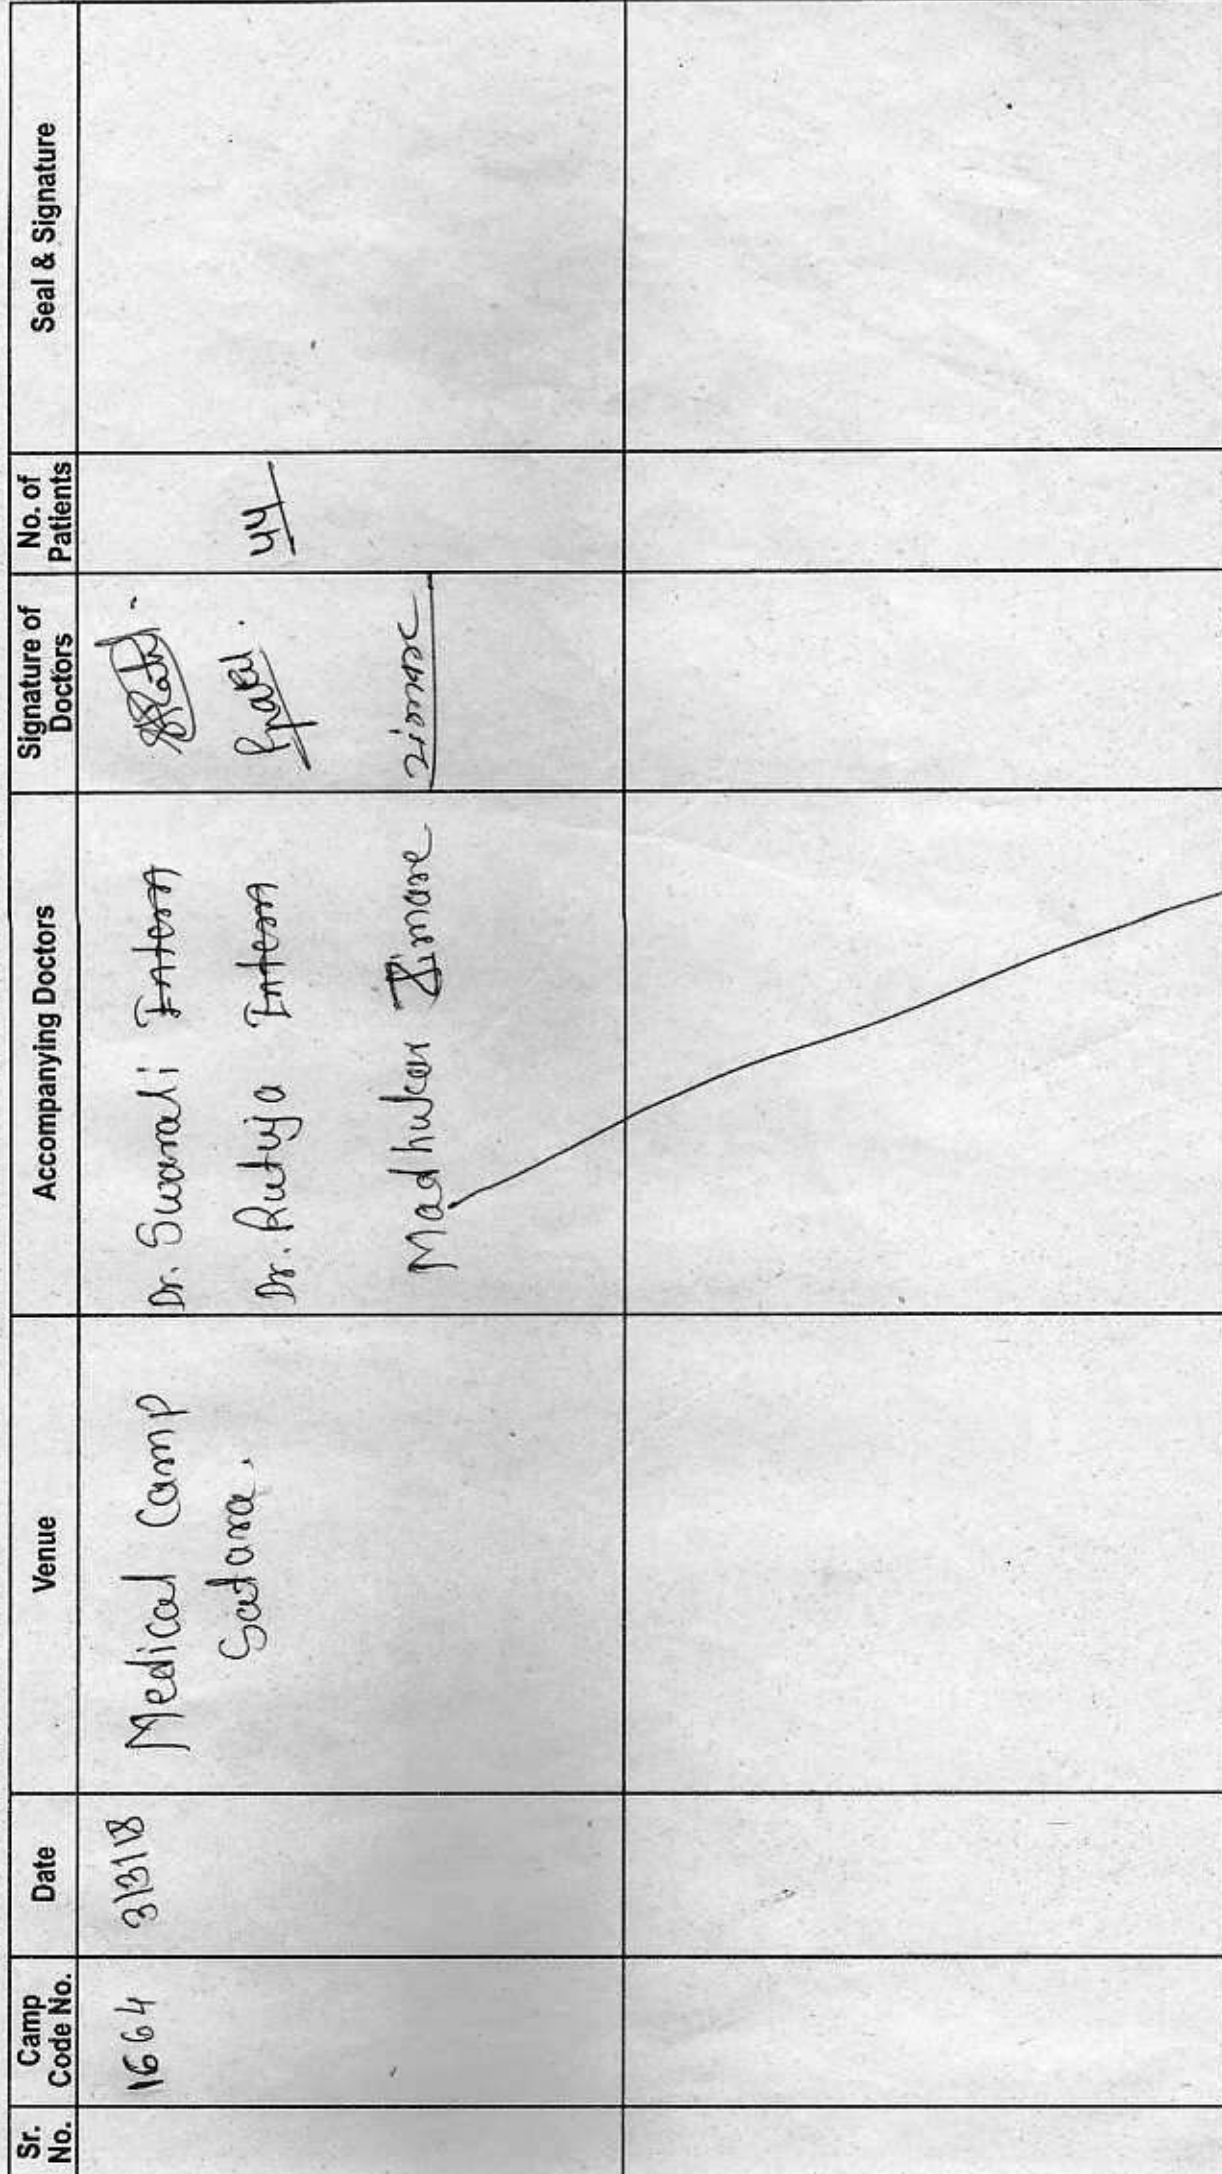 Sr. No.
Camp Code No.
Date
Venue
Accompanying Doctors
Signature of Doctors
No. of Patients
Seal & Signature
1664
3/3/18
Medical Camp
Satara.
Dr. Swarali Intern
Dr. Rutuja Intern
Madhukar Zimare
44